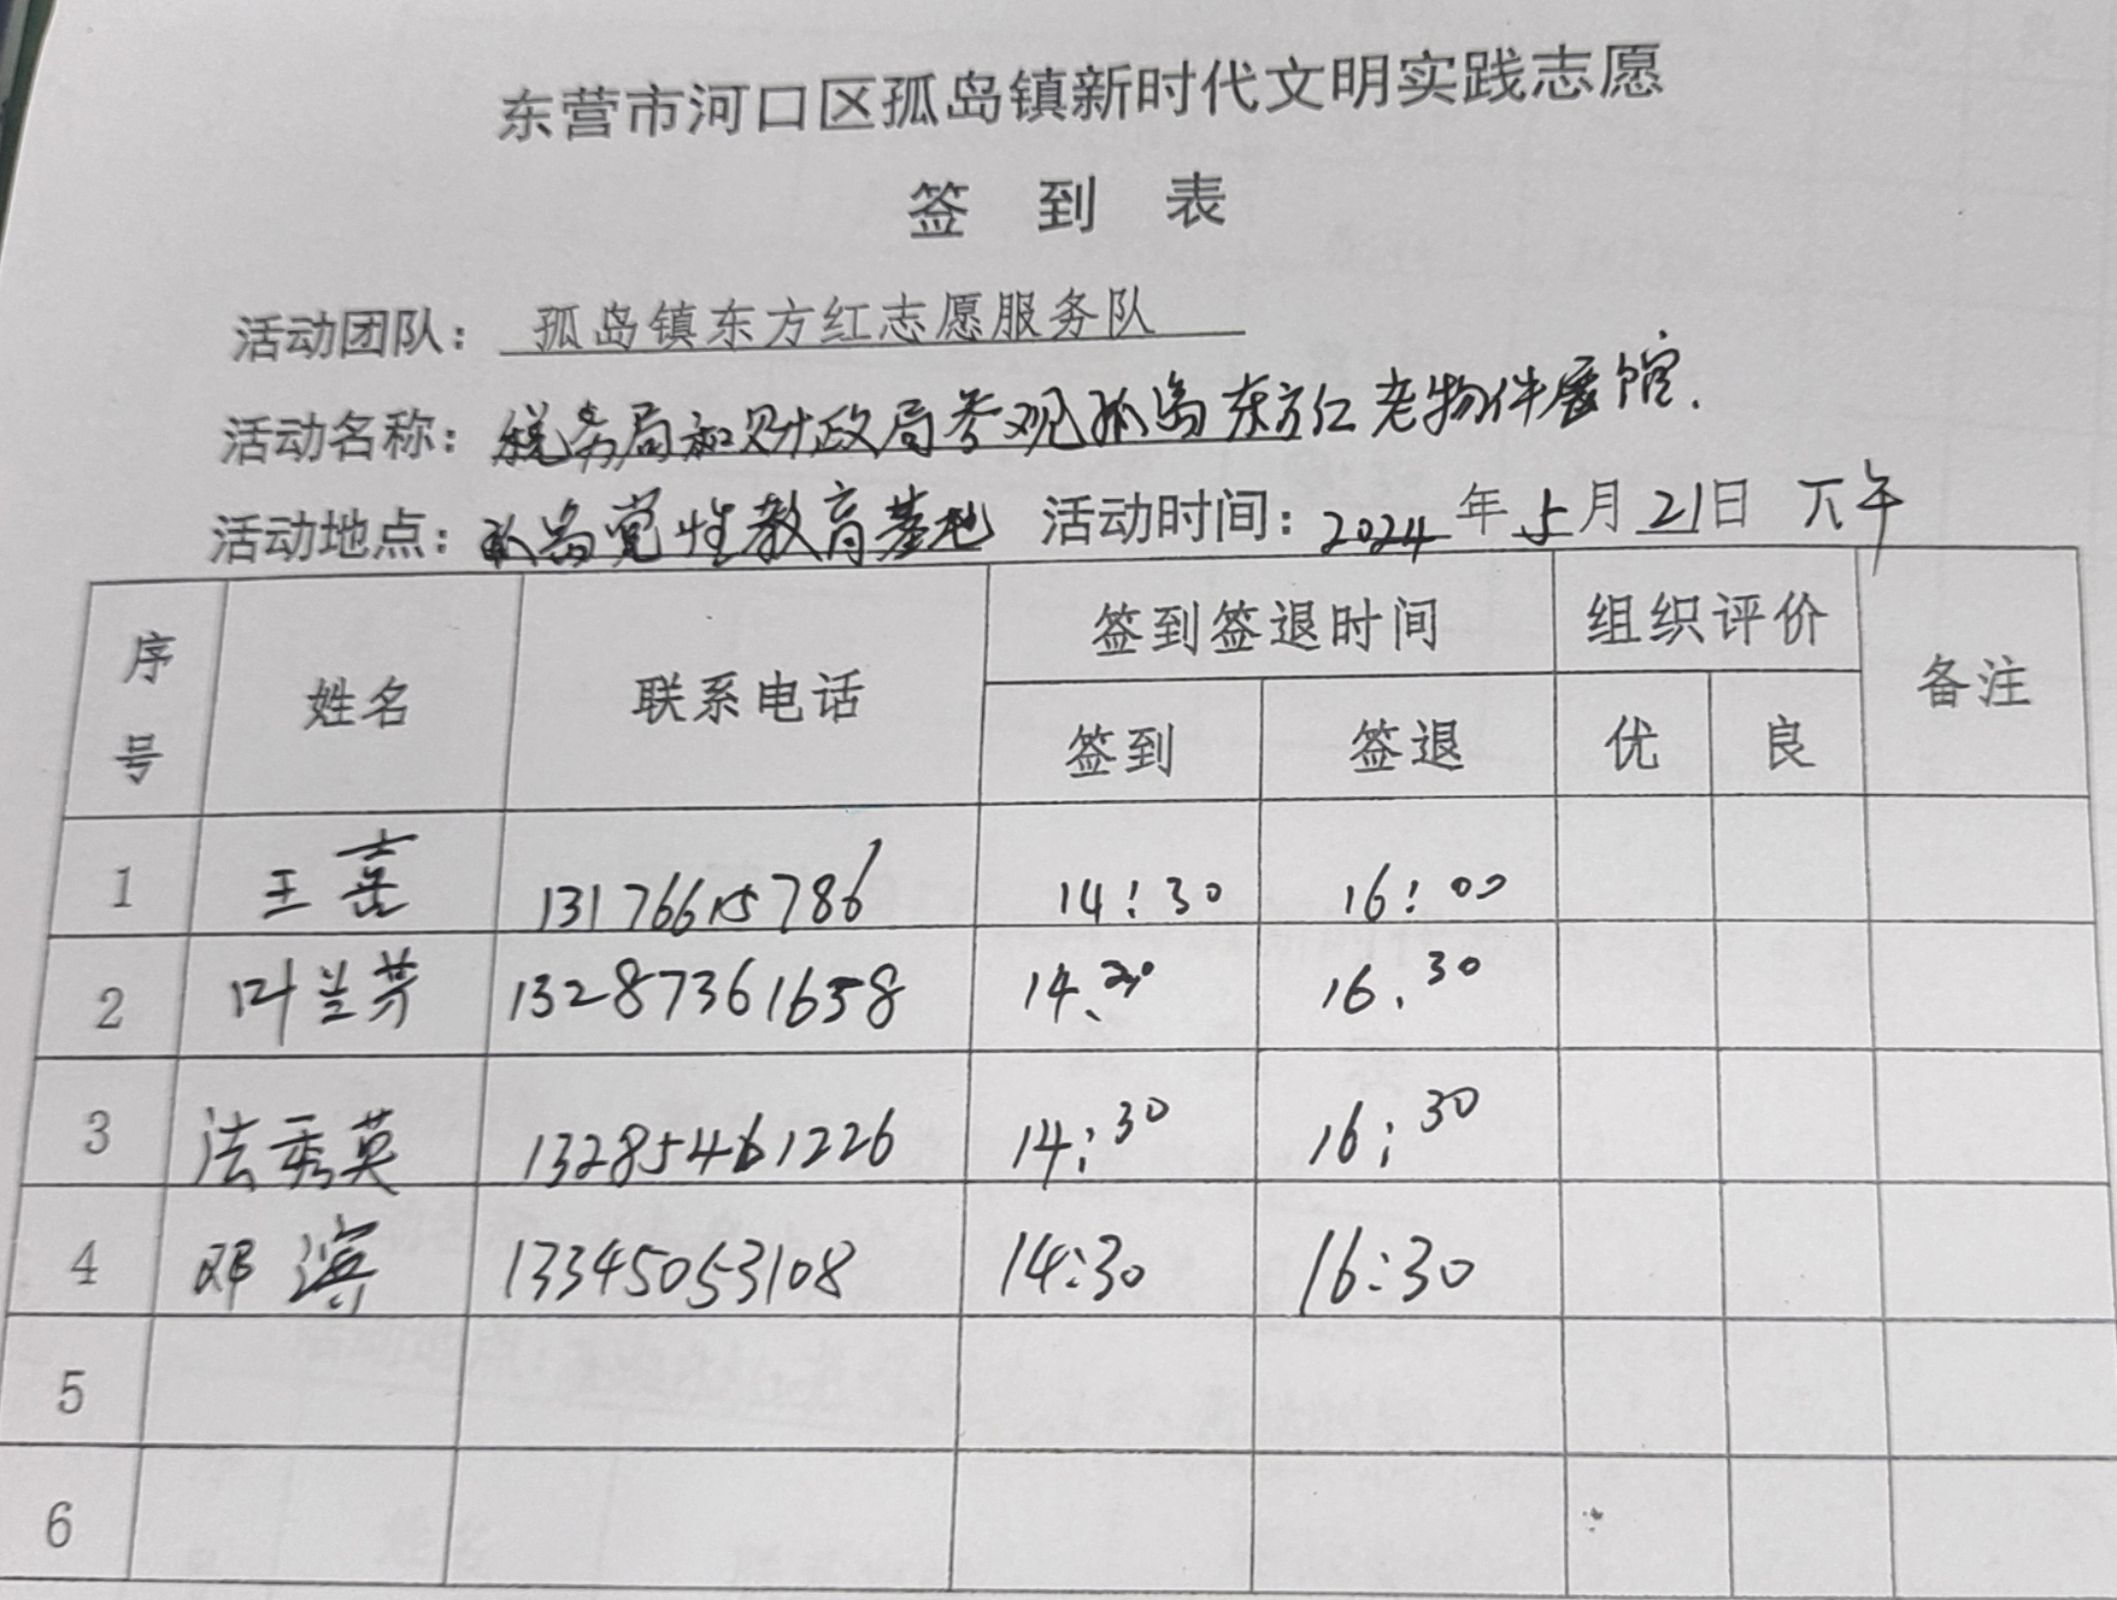 东营市河口区孤岛镇新时代文明实践志愿
签到表
活动团队：孤岛镇东方红志愿服务队
活动名称：税务局和财政局参观孤岛东方红老物件展馆.
活动地点：孤岛党性教育基地 活动时间：2024年5月21日 下午
序号 姓名 联系电话 签到签退时间 组织评价 备注
签到 签退 优 良
1 王 13176615786 14:30 16:00
2 叶兰芳 13287361658 14、 16.30
3 法秀英 13285461226 14:30 16:30
4 邓滨 13345053108 14:30 16:30
5
6